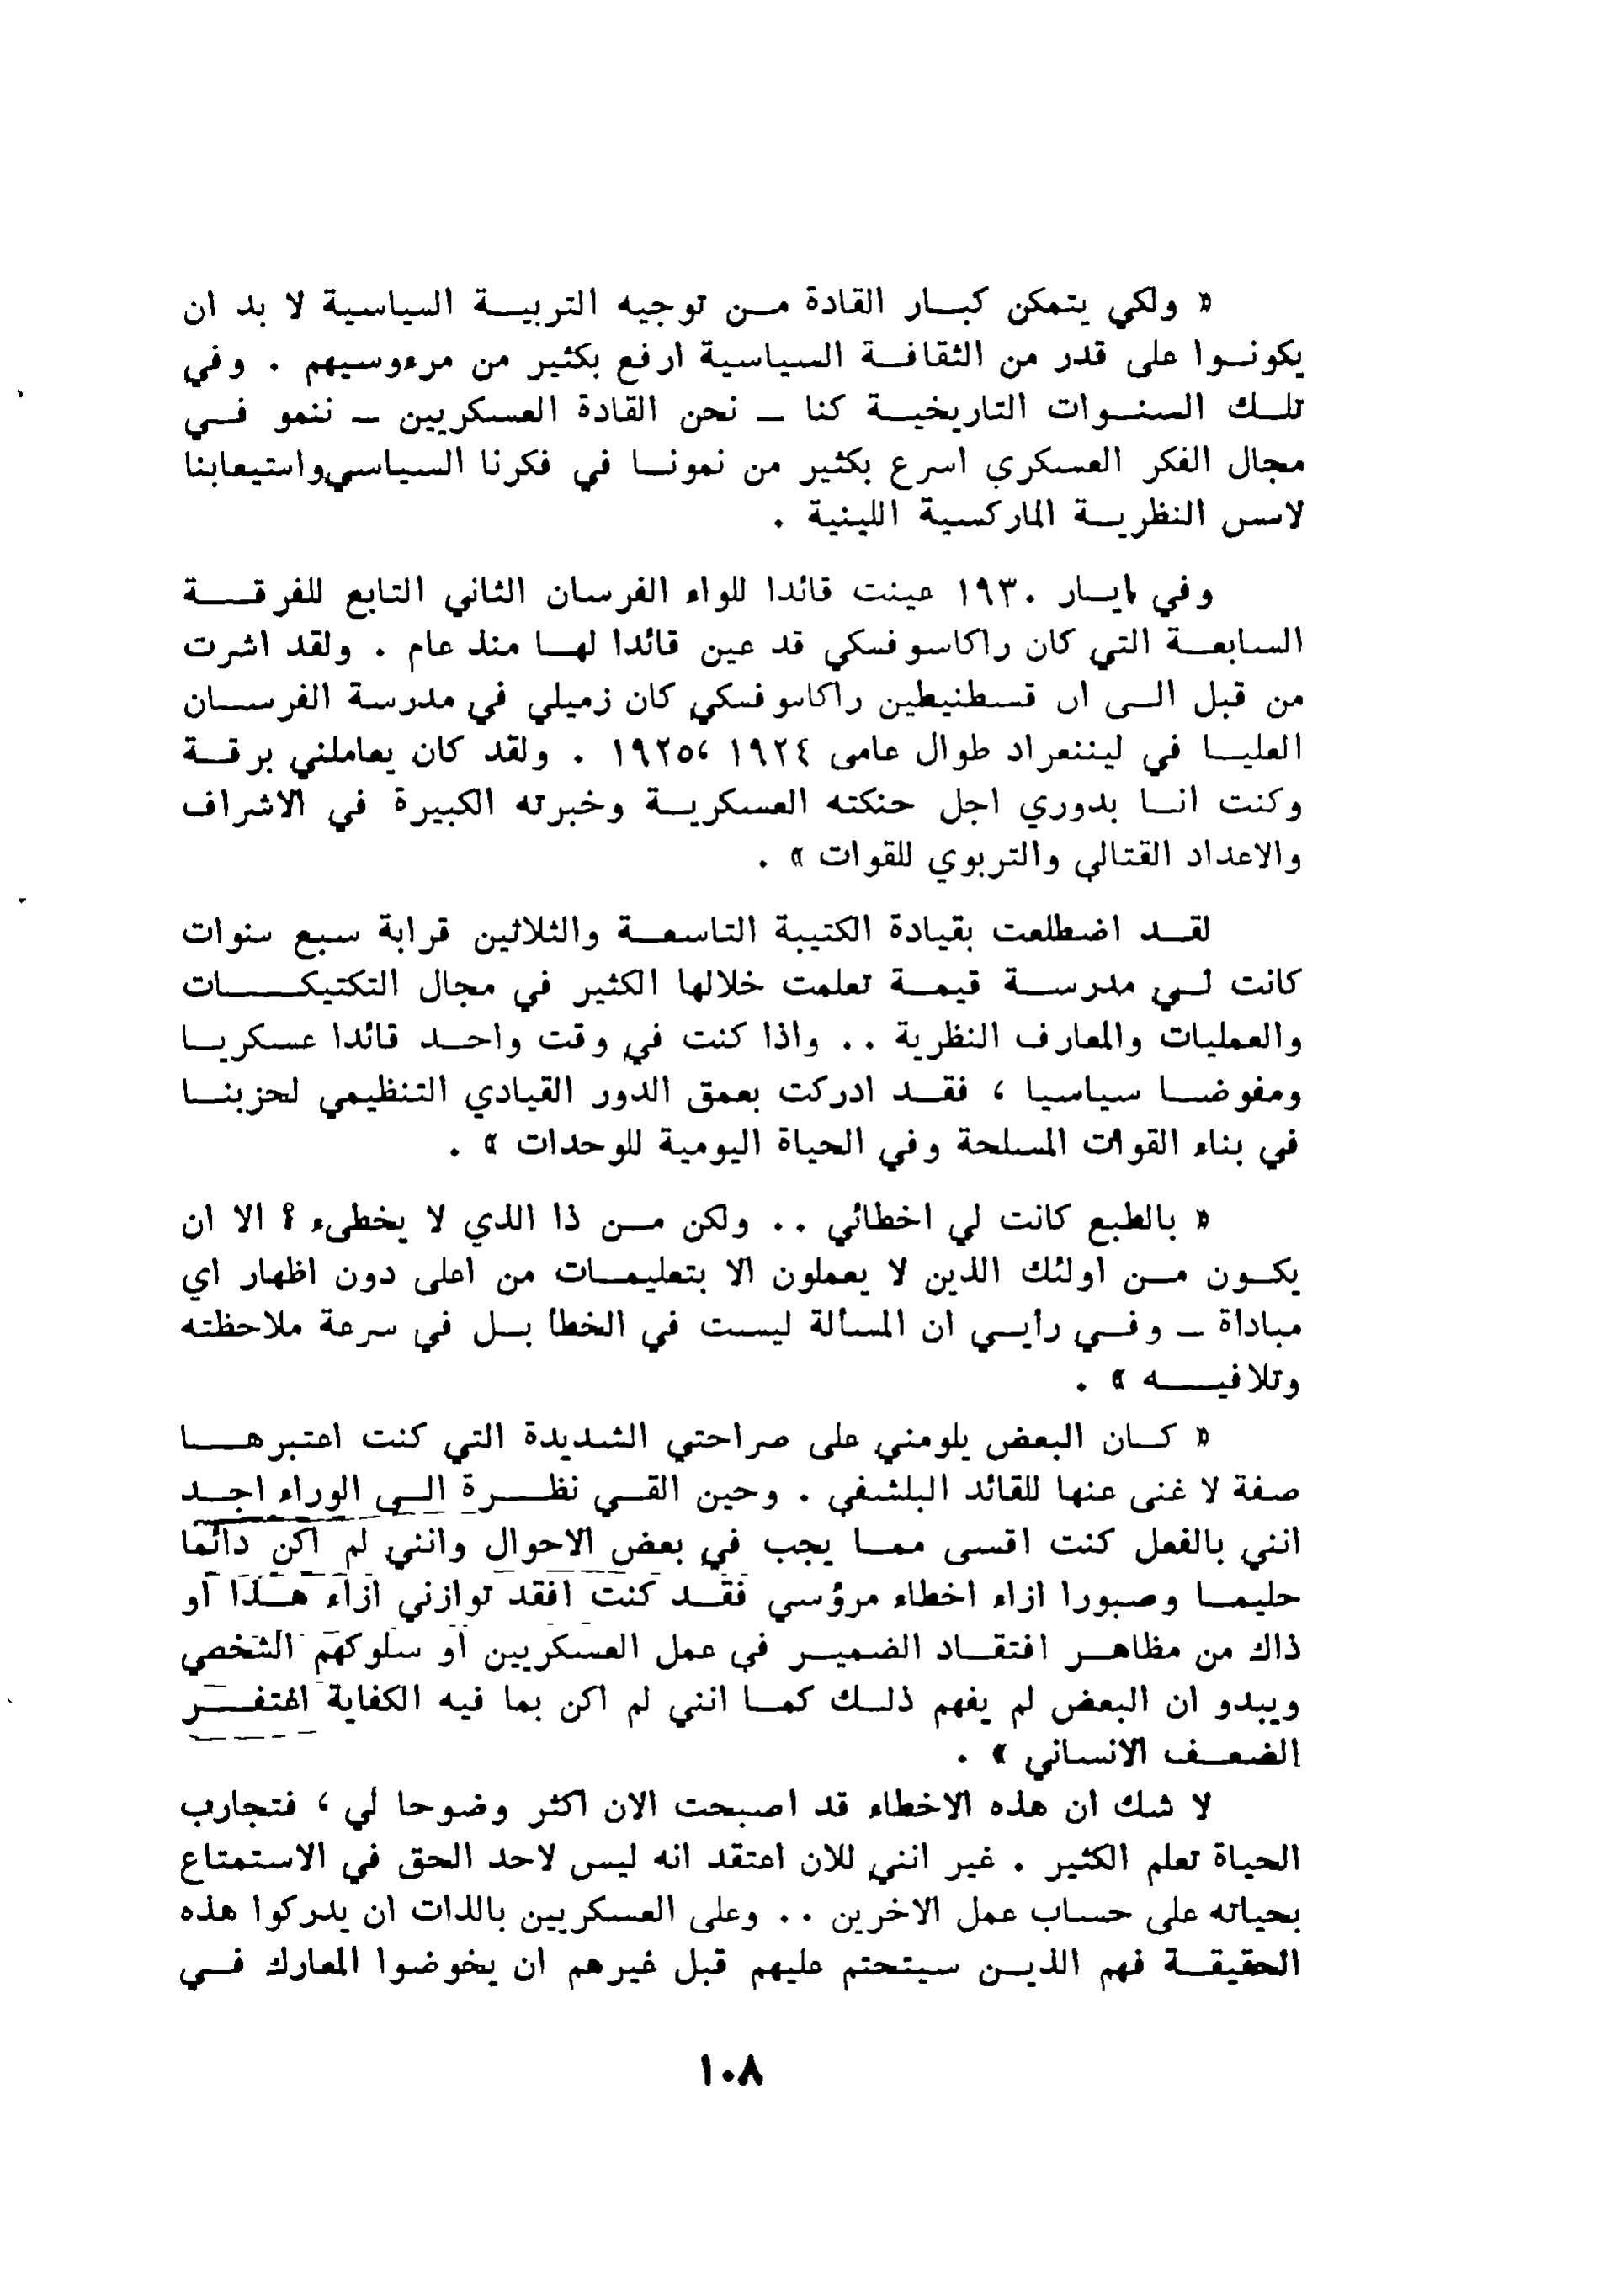 « ولكي يتمكن كبار القادة من توجيه التربية السياسية لا بد ان
يكونوا على قدر من الثقافة السياسية ارفع بكثير من مرءوسيهم . وفي
تلك السنوات التاريخية كنا – نحن القادة العسكريين – ننمو في
مجال الفكر العسكري اسرع بكثير من نمونا في فكرنا السياسي واستيعابنا
لاسس النظرية الماركسية اللينية .
وفي ايار ١٩٣٠ عينت قائدا للواء الفرسان الثاني التابع للفرقة
السابعة التي كان راكاسوفسكي قد عين قائدا لها منذ عام . ولقد اشرت
من قبل الى ان قسطنيطين راكاسوفسكي كان زميلي في مدرسة الفرسان
العليا في ليننغراد طوال عامى ١٩٢٤ ،١٩٢٥ . ولقد كان يعاملني برقة
وكنت انا بدوري اجل حنكته العسكرية وخبرته الكبيرة في الاشراف
والاعداد القتالي والتربوي للقوات » .
لقد اضطلعت بقيادة الكتيبة التاسعة والثلاثين قرابة سبع سنوات
كانت لي مدرسة قيمة تعلمت خلالها الكثير في مجال التكتيكات
والعمليات والمعارف النظرية .. واذا كنت في وقت واحد قائدا عسكريا
ومفوضا سياسيا ، فقد ادركت بعمق الدور القيادي التنظيمي لحزبنا
في بناء القوات المسلحة وفي الحياة اليومية للوحدات » .
« بالطبع كانت لي اخطائي .. ولكن من ذا الذي لا يخطىء ؟ الا ان
يكون من اولئك الذين لا يعملون الا بتعليمات من اعلى دون اظهار اي
مباداة – وفي رأيي ان المسألة ليست في الخطأ بل في سرعة ملاحظته
وتلافيه » .
« كان البعض يلومني على صراحتي الشديدة التي كنت اعتبرها
صفة لا غنى عنها للقائد البلشفي . وحين القي نظرة الى الوراء اجد
انني بالفعل كنت اقسى مما يجب في بعض الاحوال وانني لم اكن دائما
حليما وصبورا ازاء اخطاء مرؤسي فقد كنت افقد توازني ازاء هذا او
ذاك من مظاهر افتقاد الضمير في عمل العسكريين او سلوكهم الشخصي
ويبدو ان البعض لم يفهم ذلك كما انني لم اكن بما فيه الكفاية اغتفر
الضعف الانساني » .
لا شك ان هذه الاخطاء قد اصبحت الان اكثر وضوحا لي ، فتجارب
الحياة تعلم الكثير . غير انني للان اعتقد انه ليس لاحد الحق في الاستمتاع
بحياته على حساب عمل الاخرين .. وعلى العسكريين بالذات ان يدركوا هذه
الحقيقة فهم الذين سيتحتم عليهم قبل غيرهم ان يخوضوا المعارك في
١٠٨